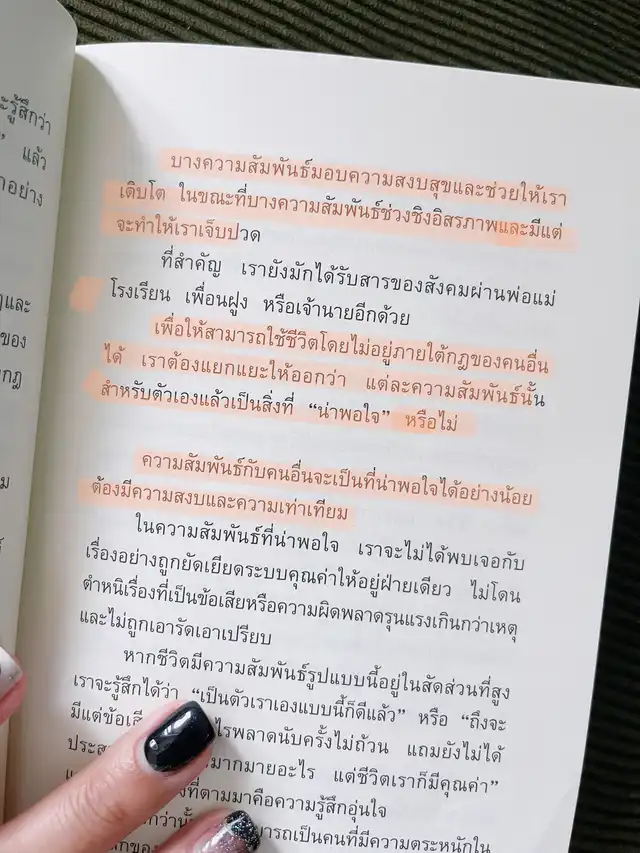 ะรู้สึกว่า
แล้ว
กอย่าง
ๆและ
ของ
กฎ
บางความสัมพันธ์มอบความสงบสุขและช่วยให้เรา
เติบโต ในขณะที่บางความสัมพันธ์ช่วงชิงอิสรภาพและมีแต่
จะทำให้เราเจ็บปวด
ที่สำคัญ เรายังมักได้รับสารของสังคมผ่านพ่อแม่
โรงเรียน เพื่อนฝูง หรือเจ้านายอีกด้วย
เพื่อให้สามารถใช้ชีวิตโดยไม่อยู่ภายใต้กฎของคนอื่น
ได้ เราต้องแยกแยะให้ออกว่า แต่ละความสัมพันธ์นั้น
สำหรับตัวเองแล้วเป็นสิ่งที่ “น่าพอใจ” หรือไม่
ความสัมพันธ์กับคนอื่นจะเป็นที่น่าพอใจได้อย่างน้อย
ต้องมีความสงบและความเท่าเทียม
ในความสัมพันธ์ที่น่าพอใจ เราจะไม่ได้พบเจอกับ
เรื่องอย่างถูกยัดเยียดระบบคุณค่าให้อยู่ฝ่ายเดียว ไม่โดน
ตำหนิเรื่องที่เป็นข้อเสียหรือความผิดพลาดรุนแรงเกินกว่าเหตุ
และไม่ถูกเอารัดเอาเปรียบ
หากชีวิตมีความสัมพันธ์รูปแบบนี้อยู่ในสัดส่วนที่สูง
เราจะรู้สึกได้ว่า “เป็นตัวเราเองแบบนี้ก็ดีแล้ว” หรือ “ถึงจะ
มีแต่ข้อเสีย ไรพลาดนับครั้งไม่ถ้วน แถมยังไม่ได้
ประส มากมายอะไร แต่ชีวิตเราก็มีคุณค่า”
ที่ตามมาคือความรู้สึกอุ่นใจ
กว่านั้ ารถเป็นคนที่มีความตระหนักใน